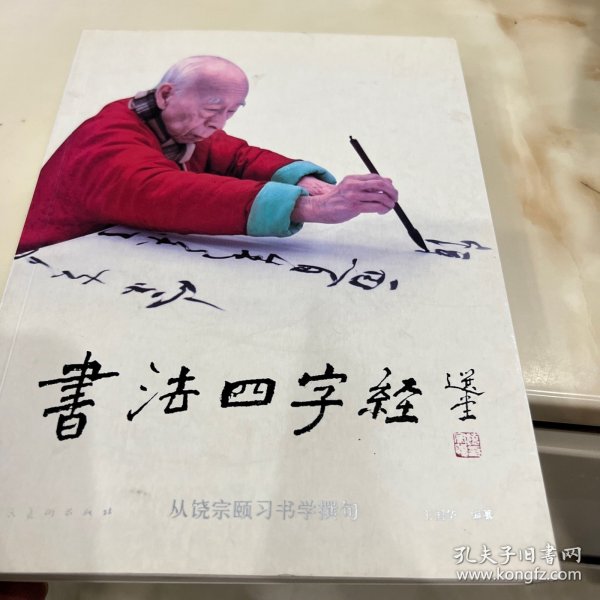 書法四字経
選堂
从饶宗颐习书学撰句
编著
孔夫子旧书网
www.kongfz.com